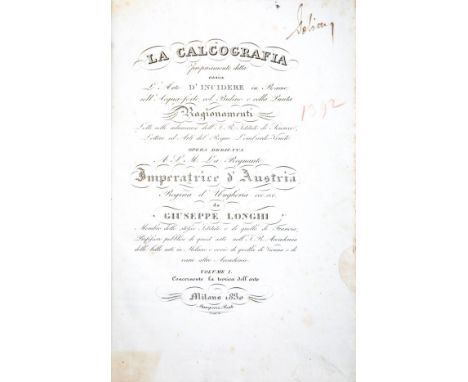 LA CALCOGRAFIA
propriamente detta
OSSIA
L'Arte D'INCIDERE in Rame
coll'Acqua-forte, col Bulino e colla Punta
Ragionamenti
Letti nelle adunanze dell'I. R. Istituto di Scienze,
Lettere ed Arti del Regno Lombardo-Veneto
OPERA DEDICATA
A. S. M. La Regnante
Imperatrice d'Austria
Regina d'Ungheria ecc. ecc.
da
GIUSEPPE LONGHI
Membro dello stesso Istituto e di quello di Francia,
Professore pubblico di quest'arte nell'I. R. Accademia
delle belle arti in Milano e socio di quelle di Vienna e di
varie altre Accademie.
VOLUME I.
Concernente la teorica dell'arte
Milano 1830
1392